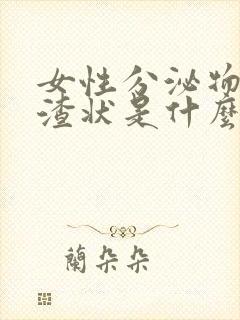 女性分泌物
渣状是什麽
蘭朵朵